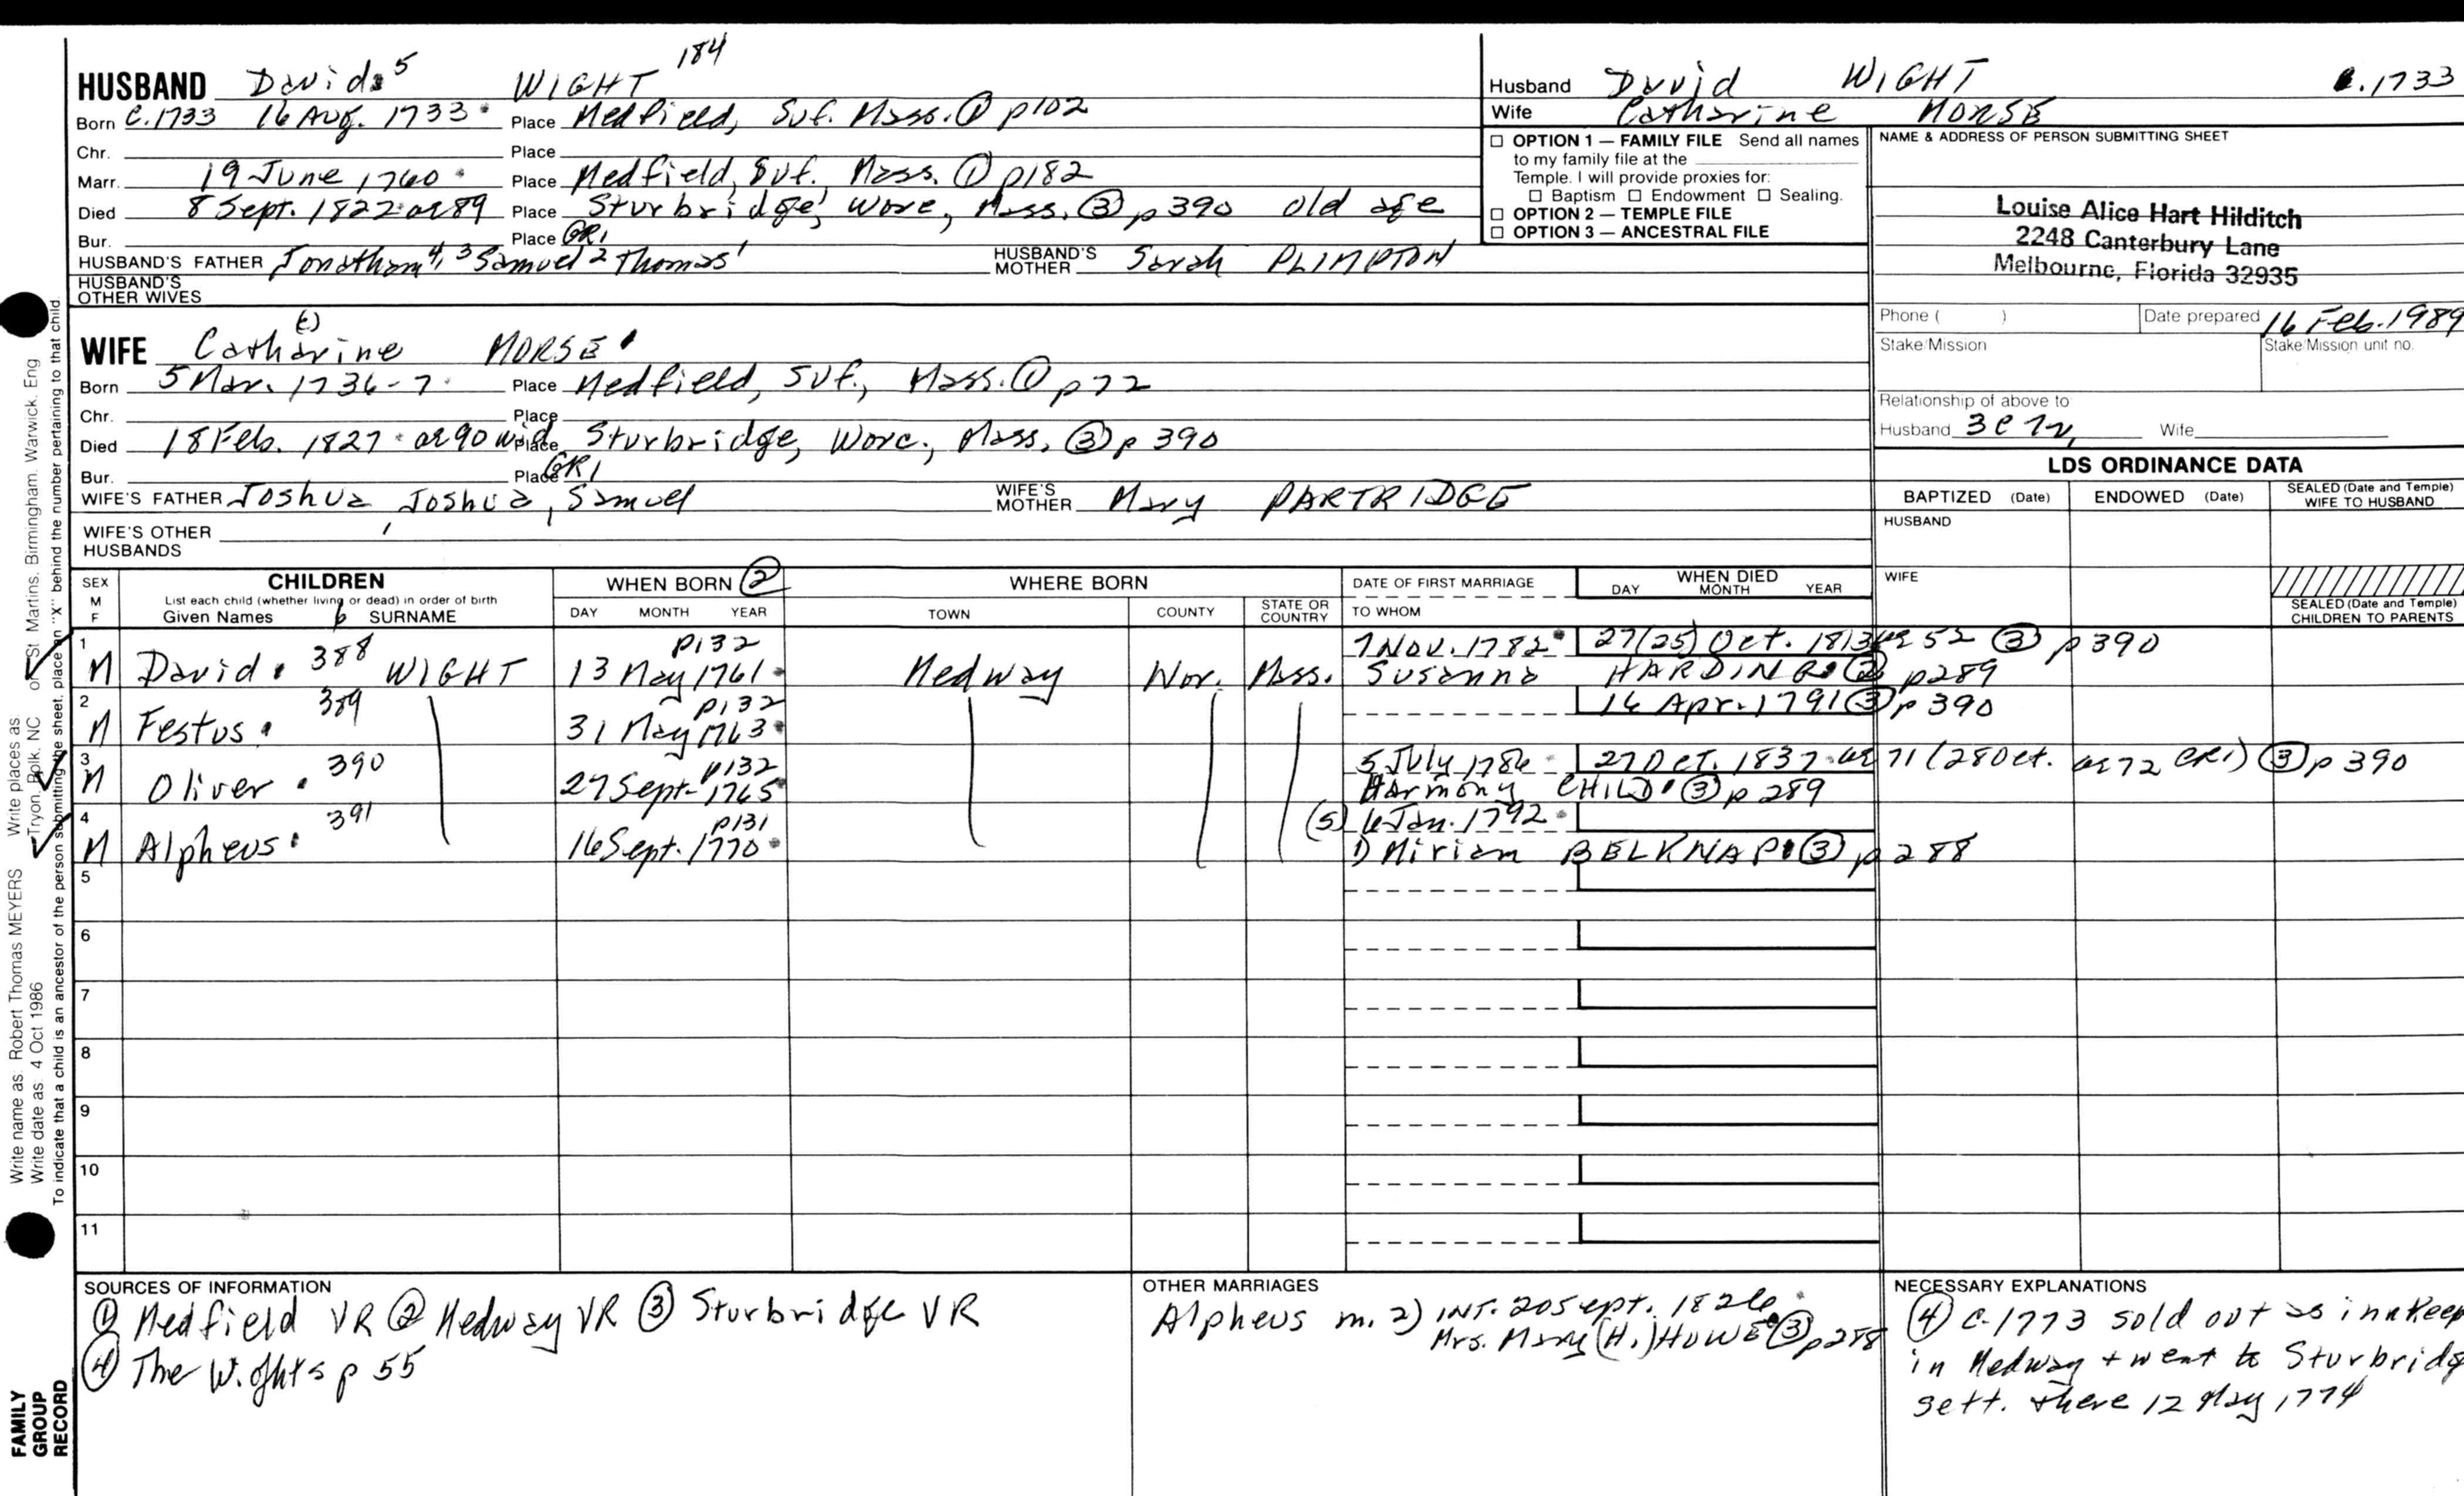 184
HUSBAND David 5 WIGHT
Born C.1733 16 Aug. 1733 Place Medfield, Suf. Mass. ① p102
Chr. Place
Marr. 19 June 1760 Place Medfield, Suf., Mass. ① p182
Died 8 Sept. 1822 ae 89 Place Sturbridge, Worc, Mass. ③ p 390 old age
Bur. Place GR1
HUSBAND'S FATHER Jonathan 4, 3 Samuel 2 Thomas 1 HUSBAND'S MOTHER Sarah PLIMPTON
HUSBAND'S OTHER WIVES
(E)
WIFE Catharine MORSE
Born 5 Mar. 1736-7 Place Medfield, Suf., Mass. ① p72
Chr. Place
Died 18 Feb. 1827 ae 90 wid Place Sturbridge, Worc., Mass. ③ p 390
Bur. Place GR1
WIFE'S FATHER Joshua, Joshua, Samuel WIFE'S MOTHER Mary PARTRIDGE
WIFE'S OTHER HUSBANDS
Husband David WIGHT c.1733
Wife Catharine MORSE
☐ OPTION 1 — FAMILY FILE Send all names
to my family file at the
Temple. I will provide proxies for:
☐ Baptism ☐ Endowment ☐ Sealing.
☐ OPTION 2 — TEMPLE FILE
☐ OPTION 3 — ANCESTRAL FILE
NAME & ADDRESS OF PERSON SUBMITTING SHEET
Louise Alice Hart Hilditch
2248 Canterbury Lane
Melbourne, Florida 32935
Phone ( ) Date prepared 16 Feb. 1989
Stake/Mission Stake/Mission unit no.
Relationship of above to
Husband Wife
LDS ORDINANCE DATA
BAPTIZED (Date) ENDOWED (Date) SEALED (Date and Temple) WIFE TO HUSBAND
HUSBAND
WIFE
SEALED (Date and Temple) CHILDREN TO PARENTS
SEX M F
CHILDREN
List each child (whether living or dead) in order of birth
Given Names 6 SURNAME
WHEN BORN ②
DAY MONTH YEAR
WHERE BORN
TOWN COUNTY STATE OR COUNTRY
DATE OF FIRST MARRIAGE
TO WHOM
WHEN DIED
DAY MONTH YEAR
1 p132 7 Nov. 1782 27(25) Oct. 1813 ae 52 ③ p390
M David 388 WIGHT 13 May 1761 Medway Wor. Mass. Susanna HARDING ② p289
2 389 p132 16 Apr. 1791 ③ p 390
M Festus 31 May 1763
3 390 p132 5 July 1786 27 Oct. 1837 ae 71 (28 Oct. ae 72 GR1) ③ p 390
M Oliver 27 Sept. 1765 Harmony CHILD ③ p 289
4 391 p131 (5) 6 Jan. 1792
M Alpheus 16 Sept. 1770 1) Miriam BELKNAP ③ p 288
5
6
7
8
9
10
11
SOURCES OF INFORMATION
① Medfield VR ② Medway VR ③ Sturbridge VR
④ The Wights p 55
OTHER MARRIAGES
Alpheus m. 2) INT. 20 Sept. 1826
Mrs. Mary (H.) HOWE ③ p288
NECESSARY EXPLANATIONS
④ c.1773 sold out as innkeep
in Medway + went to Sturbridg
sett. there 12 May 1774
Write name as: Robert Thomas MEYERS Write places as
Write date as: 4 Oct 1986 Tryon, Polk, NC or St Martins, Birmingham, Warwick, Eng
To indicate that a child is an ancestor of the person submitting the sheet, place an "X" behind the number pertaining to that child
FAMILY
GROUP
RECORD